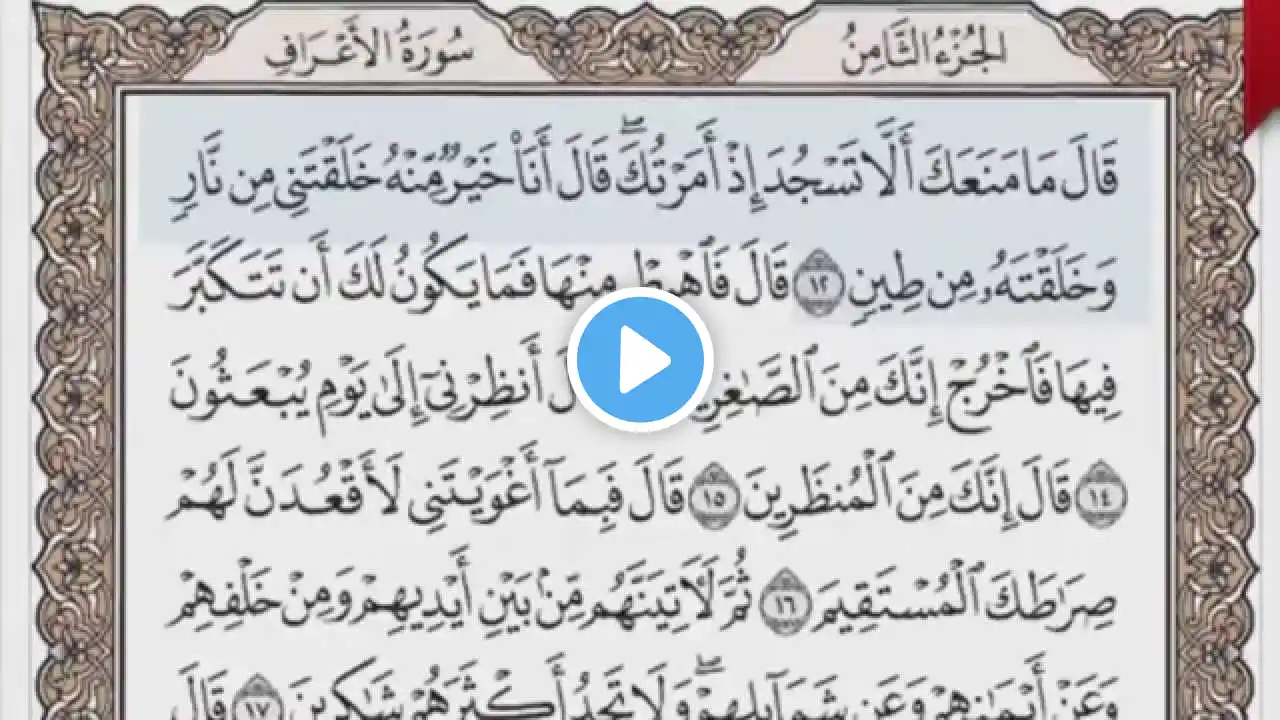 الجُزْءُ الثَّامِنُ
سُورَةُ الأَعْرَافِ
قَالَ مَا مَنَعَكَ أَلَّا تَسْجُدَ إِذْ أَمَرْتُكَ ۖ قَالَ أَنَا۠ خَيْرٌ مِّنْهُ خَلَقْتَنِى مِن نَّارٍ
وَخَلَقْتَهُۥ مِن طِينٍ ١٢ قَالَ فَٱهْبِطْ مِنْهَا فَمَا يَكُونُ لَكَ أَن تَتَكَبَّرَ
فِيهَا فَٱخْرُجْ إِنَّكَ مِنَ أَنظِرْنِىٓ إِلَىٰ يَوْمِ يُبْعَثُونَ
١٤ قَالَ إِنَّكَ مِنَ ٱلْمُنظَرِينَ ١٥ قَالَ فَبِمَآ أَغْوَيْتَنِى لَأَقْعُدَنَّ لَهُمْ
صِرَٰطَكَ ٱلْمُسْتَقِيمَ ١٦ ثُمَّ لَـَٔاتِيَنَّهُم مِّنۢ بَيْنِ أَيْدِيهِمْ وَمِنْ خَلْفِهِمْ
وَعَنْ أَيْمَٰنِهِمْ وَعَن شَمَآئِلِهِمْ ۖ وَلَا تَجِدُ أَكْثَرَهُمْ شَٰكِرِينَ ١٧ قَالَ